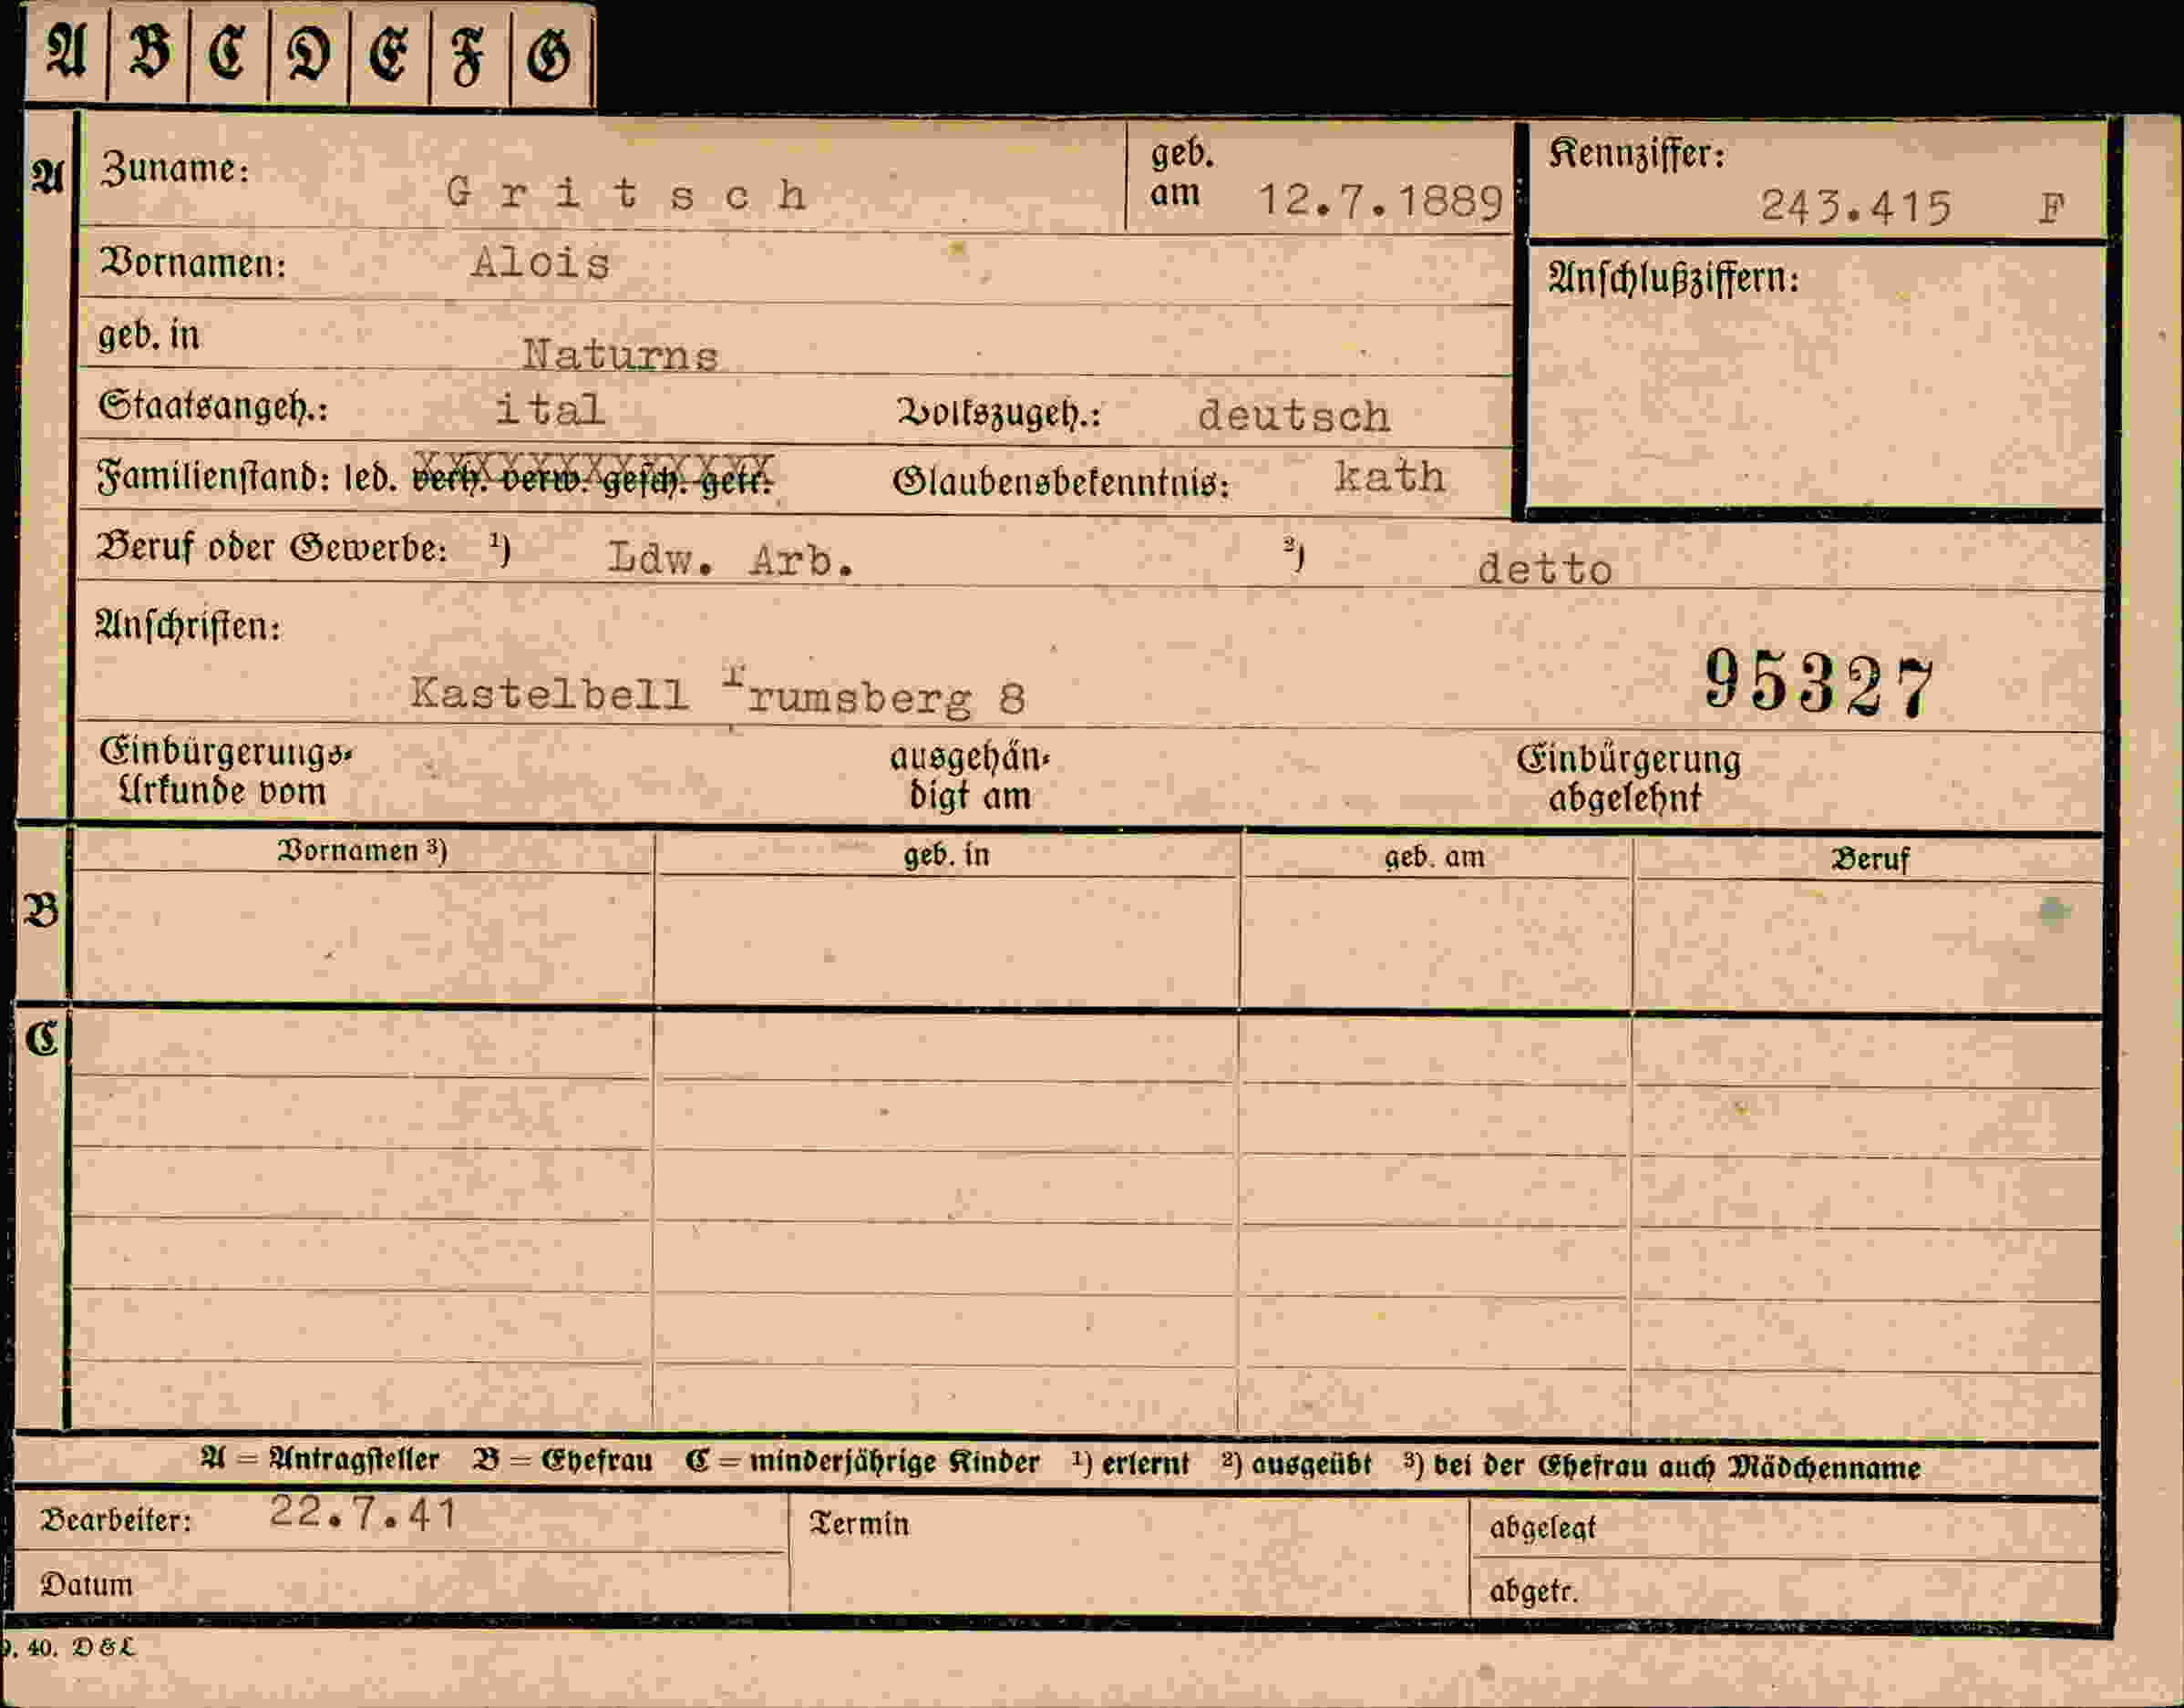 A B C D E F G
A Zuname: Gritsch geb. am 12.7.1889 Kennziffer: 243.415 F
Vornamen: Alois Anschlußziffern:
geb. in Naturns
Staatsangeh.: ital Volkszugeh.: deutsch
Familienstand: led. verh. verw. gesch. getr. Glaubensbekenntnis: kath
Beruf oder Gewerbe: ¹) Ldw. Arb. ²) detto
Anschriften:
Kastelbell Trumsberg 8 95327
Einbürgerungs- ausgehän- Einbürgerung
Urkunde vom digt am abgelehnt
Vornamen ³) geb. in geb. am Beruf
B
C
A = Antragsteller B = Ehefrau C = minderjährige Kinder ¹) erlernt ²) ausgeübt ³) bei der Ehefrau auch Mädchenname
Bearbeiter: 22.7.41 Termin abgelegt
Datum abgetr.
9. 40. D & L